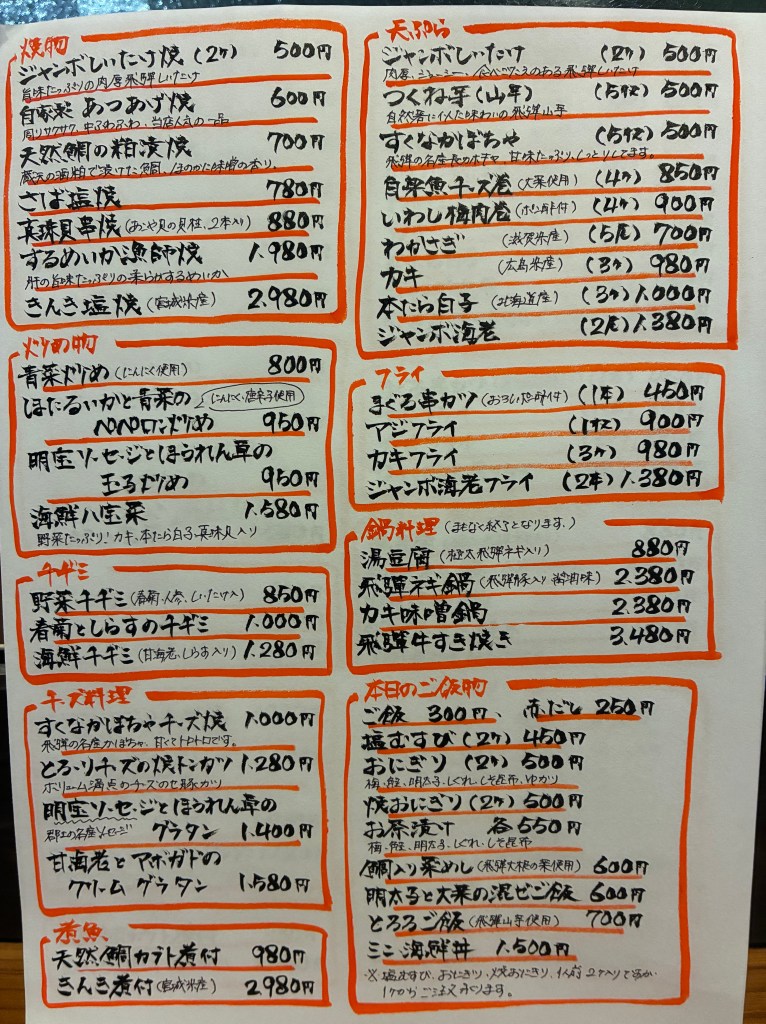 焼物
ジャンボしいたけ焼 (2ケ) 500円
旨味たっぷりの肉厚飛騨しいたけ
自家製 あつあげ焼 600円
周りサクサク、中ふわふわ、当店人気の一品
天然鯛の粕漬焼 700円
蔵元の酒粕で漬けた鯛、ほのかな味噌の香り。
さば塩焼 780円
真珠貝串焼 (あこや貝の貝柱、2本入り) 880円
するめいか漁師焼 1.980円
肝の旨味たっぷりの柔らかするめいか
きんき塩焼 (宮城県産) 2.980円
炒め物
青菜炒め (にんにく使用) 800円
ほたるいかと青菜の (にんにく、唐辛子使用)
ペペロンチーノ炒め 950円
明宝ソーセージとほうれん草の
玉子炒め 950円
海鮮八宝菜 1.580円
野菜たっぷり! カキ、本たら白子、真珠貝入り
チヂミ
野菜チヂミ (春菊、人参、しいたけ入) 850円
春菊としらすのチヂミ 1.000円
海鮮チヂミ (甘海老、しらす入り) 1.280円
チーズ料理
すくなかぼちゃチーズ焼 1.000円
飛騨の名産かぼちゃ、甘くてトロトロです。
とろ〜りチーズの焼トンカツ 1.280円
ボリューム満点のチーズのせ豚カツ
明宝ソーセージとほうれん草の
郡上の名産ソーセージ グラタン 1.400円
甘海老とアボガドの
クリームグラタン 1.580円
煮魚
天然鯛カブト煮付 980円
きんき煮付 (宮城県産) 2.980円
天ぷら
ジャンボしいたけ (2ケ) 500円
肉厚、ジューシー、食べごたえのある飛騨しいたけ
つくね芋 (山芋) (5切) 500円
自然薯に似た味わいの飛騨山芋
すくなかぼちゃ (5切) 500円
飛騨の名産長カボチャ、甘味たっぷり、しっとりしてます。
白身魚チーズ巻 (大葉使用) (4ケ) 850円
いわし梅肉巻 (ポン酢付) (4ケ) 900円
わかさぎ (滋賀県産) (5尾) 700円
カキ (広島県産) (3ケ) 980円
本たら白子 (北海道産) (3ケ) 1.000円
ジャンボ海老 (2尾) 1.380円
フライ
まぐろ串カツ (おろしポン酢付) (1本) 450円
アジフライ (1枚) 900円
カキフライ (3ケ) 980円
ジャンボ海老フライ (2本) 1.380円
鍋料理 (まもなく終了となります。)
湯豆腐 (極太飛騨ネギ入り) 880円
飛騨ネギ鍋 (飛騨豚入り 醤油味) 2.380円
カキ味噌鍋 2.380円
飛騨牛すき焼き 3.480円
本日のご飯物
ご飯 300円、 赤だし 250円
塩むすび (2ケ) 450円
おにぎり (2ケ) 500円
梅、鮭、明太子、しぐれ、しそ昆布、ゆかり
焼おにぎり (2ケ) 500円
お茶漬け 各550円
梅、鮭、明太子、しぐれ、しそ昆布
鯛入り菜めし (飛騨大根の葉使用) 600円
明太子と大葉の混ぜご飯 600円
とろろご飯 (飛騨山芋使用) 700円
ミニ海鮮丼 1.500円
※塩むすび、おにぎり、焼おにぎり、1人前2ケ入りですが
1ケからご注文承ります。